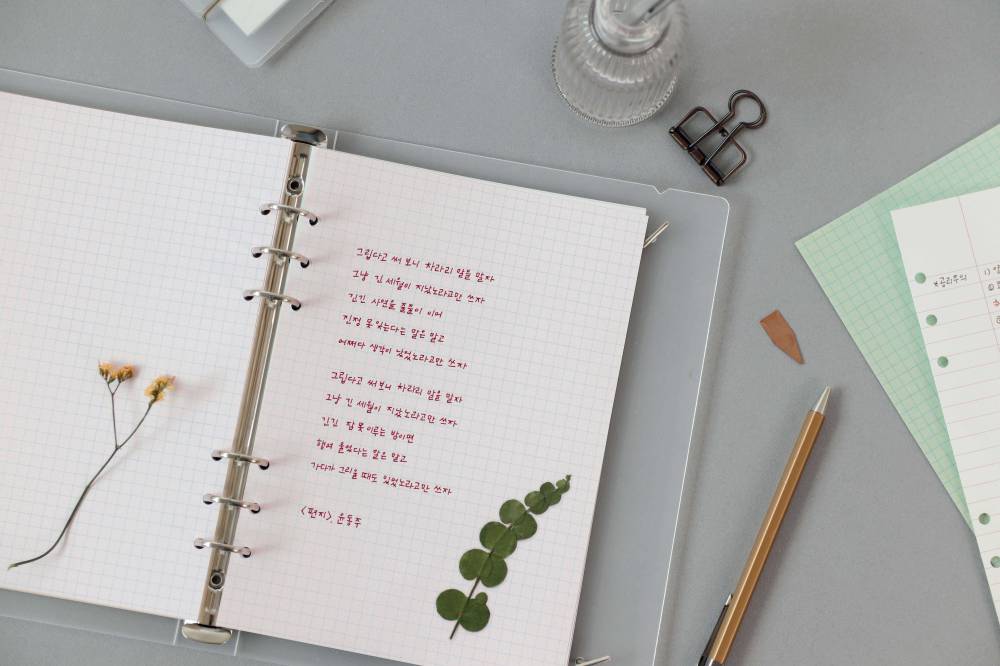 그립다고 써 보니 차라리 말을 말자
그냥 긴 세월이 지났노라고만 쓰자
긴긴 사연을 줄줄이 이어
진정 못 잊는다는 말은 말고
어쩌다 생각이 났었노라고만 쓰자
그립다고 써 보니 차라리 말을 말자
그냥 긴 세월이 지났노라고만 쓰자
긴긴 잠 못 이루는 밤이면
행여 울었다는 말은 말고
가다가 그리울 때도 있었노라고만 쓰자
<편지>, 윤동주
*공리주의